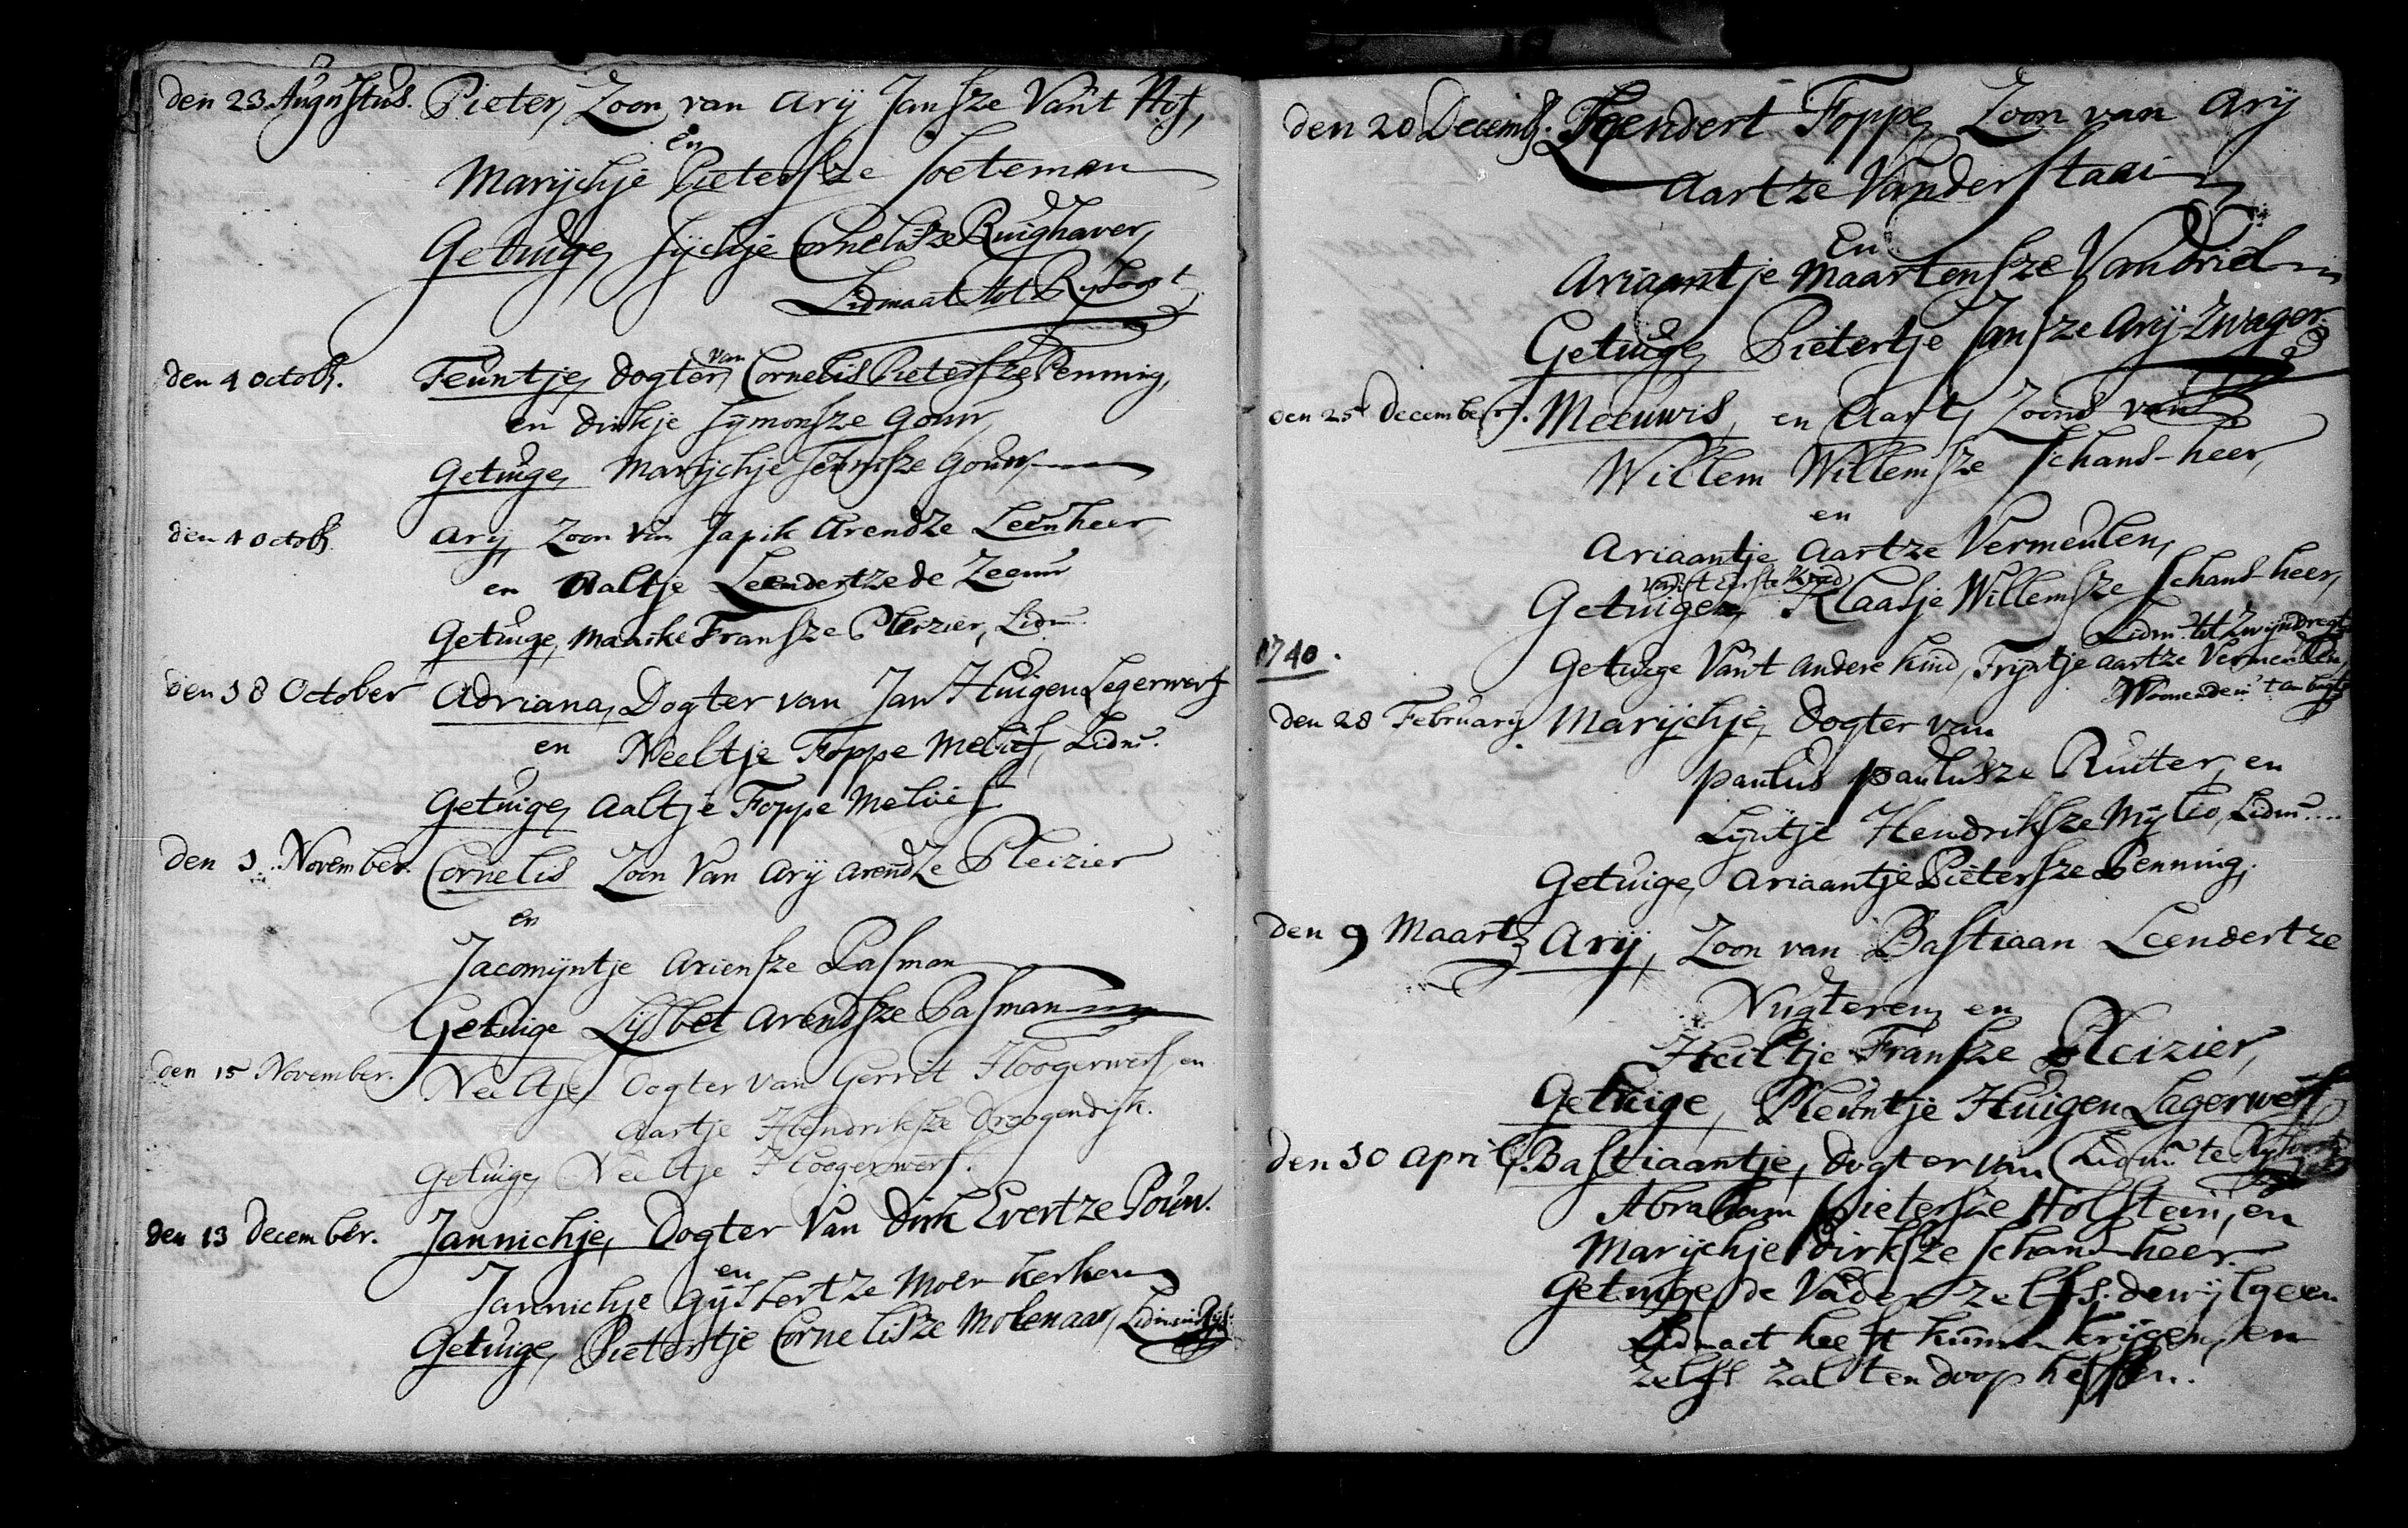 den 23 Augustus. Pieter, Zoon van Arij Jansze Van't Hof,
en
Marijchje Pietersze Soeteman
Getuige, Sijchje Cornelisze Ruighaver,
Lidmaat tot Rijsoort
den 4 octob. Teuntje, dogter van Cornelis Pietersze Penning,
en dirkje Sijmonsze Gouw,
Getuige, Marijchje Teunisze Gouw,
den 4 octob. Arij, Zoon van Japik Arendze Leenheer
en Aaltje Leendertze de Zeeuw
Getuige, Maaike Fransze Pleizier, Lidm.
den 18 October Adriana, Dogter van Jan Huigen Legerwerf
en Neeltje Foppe Melief, Lidm.
Getuige, Aaltje Foppe Melief
den 1. November. Cornelis Zoon Van Arij Arendze Pleizier
en
Jacomijntje Ariensze Pasman
Getuige Lijsbet Arendsze Pasman
den 15 November. Neeltje, Dogter van Gerrit Hoogerwerf, en
Aartje Hendriksze Droogendijk.
Getuige, Neeltje Hoogerwerf.
den 13 December. Jannichje, Dogter Van Dirk Evertze Pouw.
en
Jannichje Gijsbertze Moer-kerken
Getuige, Pietertje Cornelisze Molenaar, Lidm.
den 20 Decemb. Leendert Foppe, Zoon van Arij
Aartze Vander Staai
En
Ariaantje Maartensze Van driel
Getuige, Pietertje Jansze Arij-Zwager.
den 25 December. Meeuwis, en Aart, Zoons van
Willem Willemsze Schans-heer,
en
Ariaantje Aartze Vermeulen,
Getuige, van't Eerste Kind, Klaasje Willemsze Schans-heer,
Lidm. tot Zwijndregt
1740.
Getuige Van't Andere kind, Trijntje Aartze Vermeulen,
den 28 February Marijchje, dogter van
Paulus Paulusze Ruiter, en
Lijntje Hendriksze Mijlio, Lidm.
Getuige, Ariaantje Pietersze Penning,
den 9 Maart Arij, Zoon van Bastiaan Leendertze
Nugteren, en
Heiltje Fransze Pleizier,
Getuige, Pleuntje Huigen Lagerwerf
Lidm. te
den 30 April. Bastiaantje, dogter van
Abraham Pietersze Holstein, en
Marijchje dirksze Schans-heer.
Getuige, de Vader zelfs. dewijl geen
Lidmaet heeft kunnen krijgen, en
zelfs zal ten doop heffen.